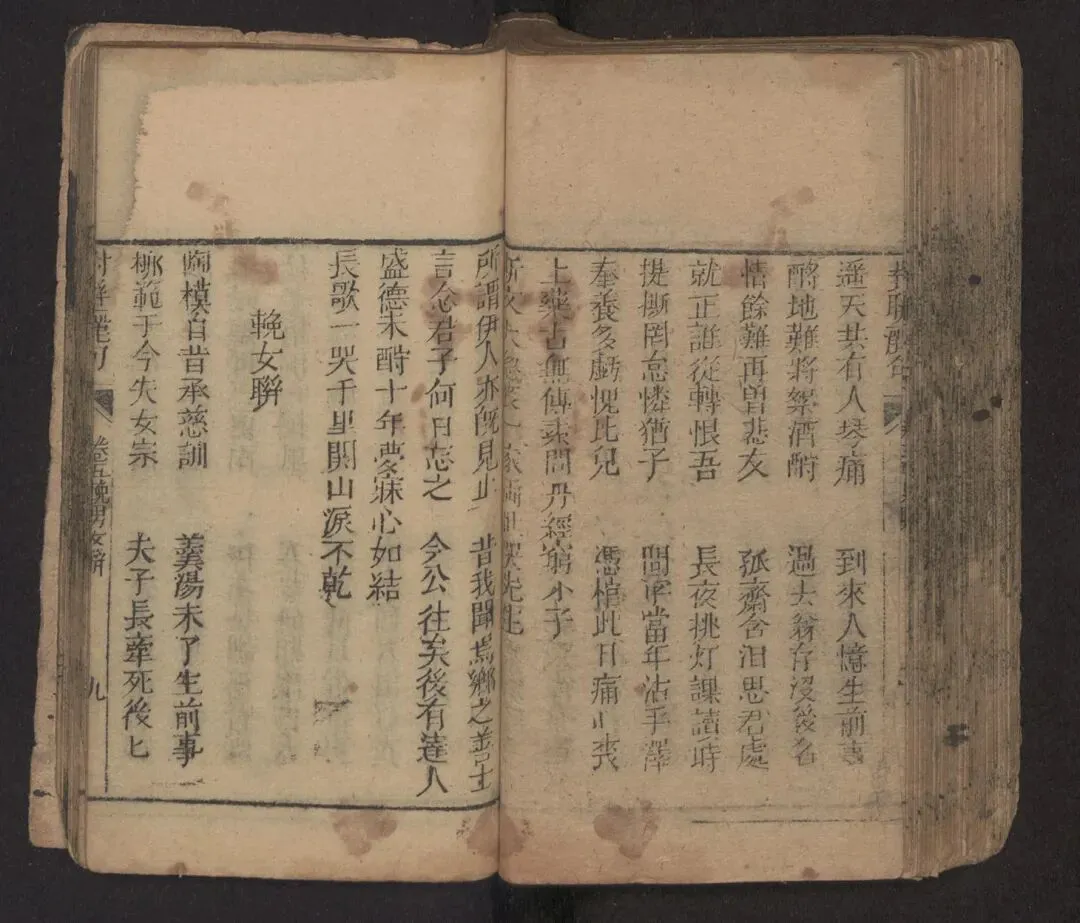 遥天共有人琴痛 到來人憶生前事
地難將絮酒酹 過去 存沒後名
情餘難再曾悲友 孤齋含泪思君處
就正誰從轉恨吾 長夜挑灯課讀時
提撕罔怠憐猶子 問字當年沾手澤
奉養多虧愧比兒 憑棺此日痛 喪
上藥古無傳素問丹經窮小子
斯文 哭先生
所謂伊人亦既見止 昔我聞焉鄉之善士
言念君子何日忘之 今公往矣後有達人
盛德未酧十年夢寐心如結
長歌一哭千里関山淚不乾
輓女聯
陶模自昔承慈訓 羹湯未了生前事
範于今失女宗 夫子長牽死後
卷五輓男女聯 九